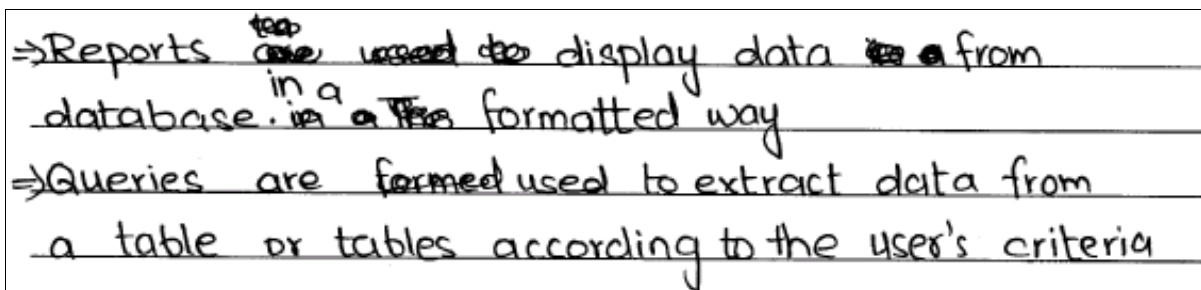 ⇒Reports display data from
database. in a formatted way
⇒Queries are formed used to extract data from
a table or tables according to the user's criteria